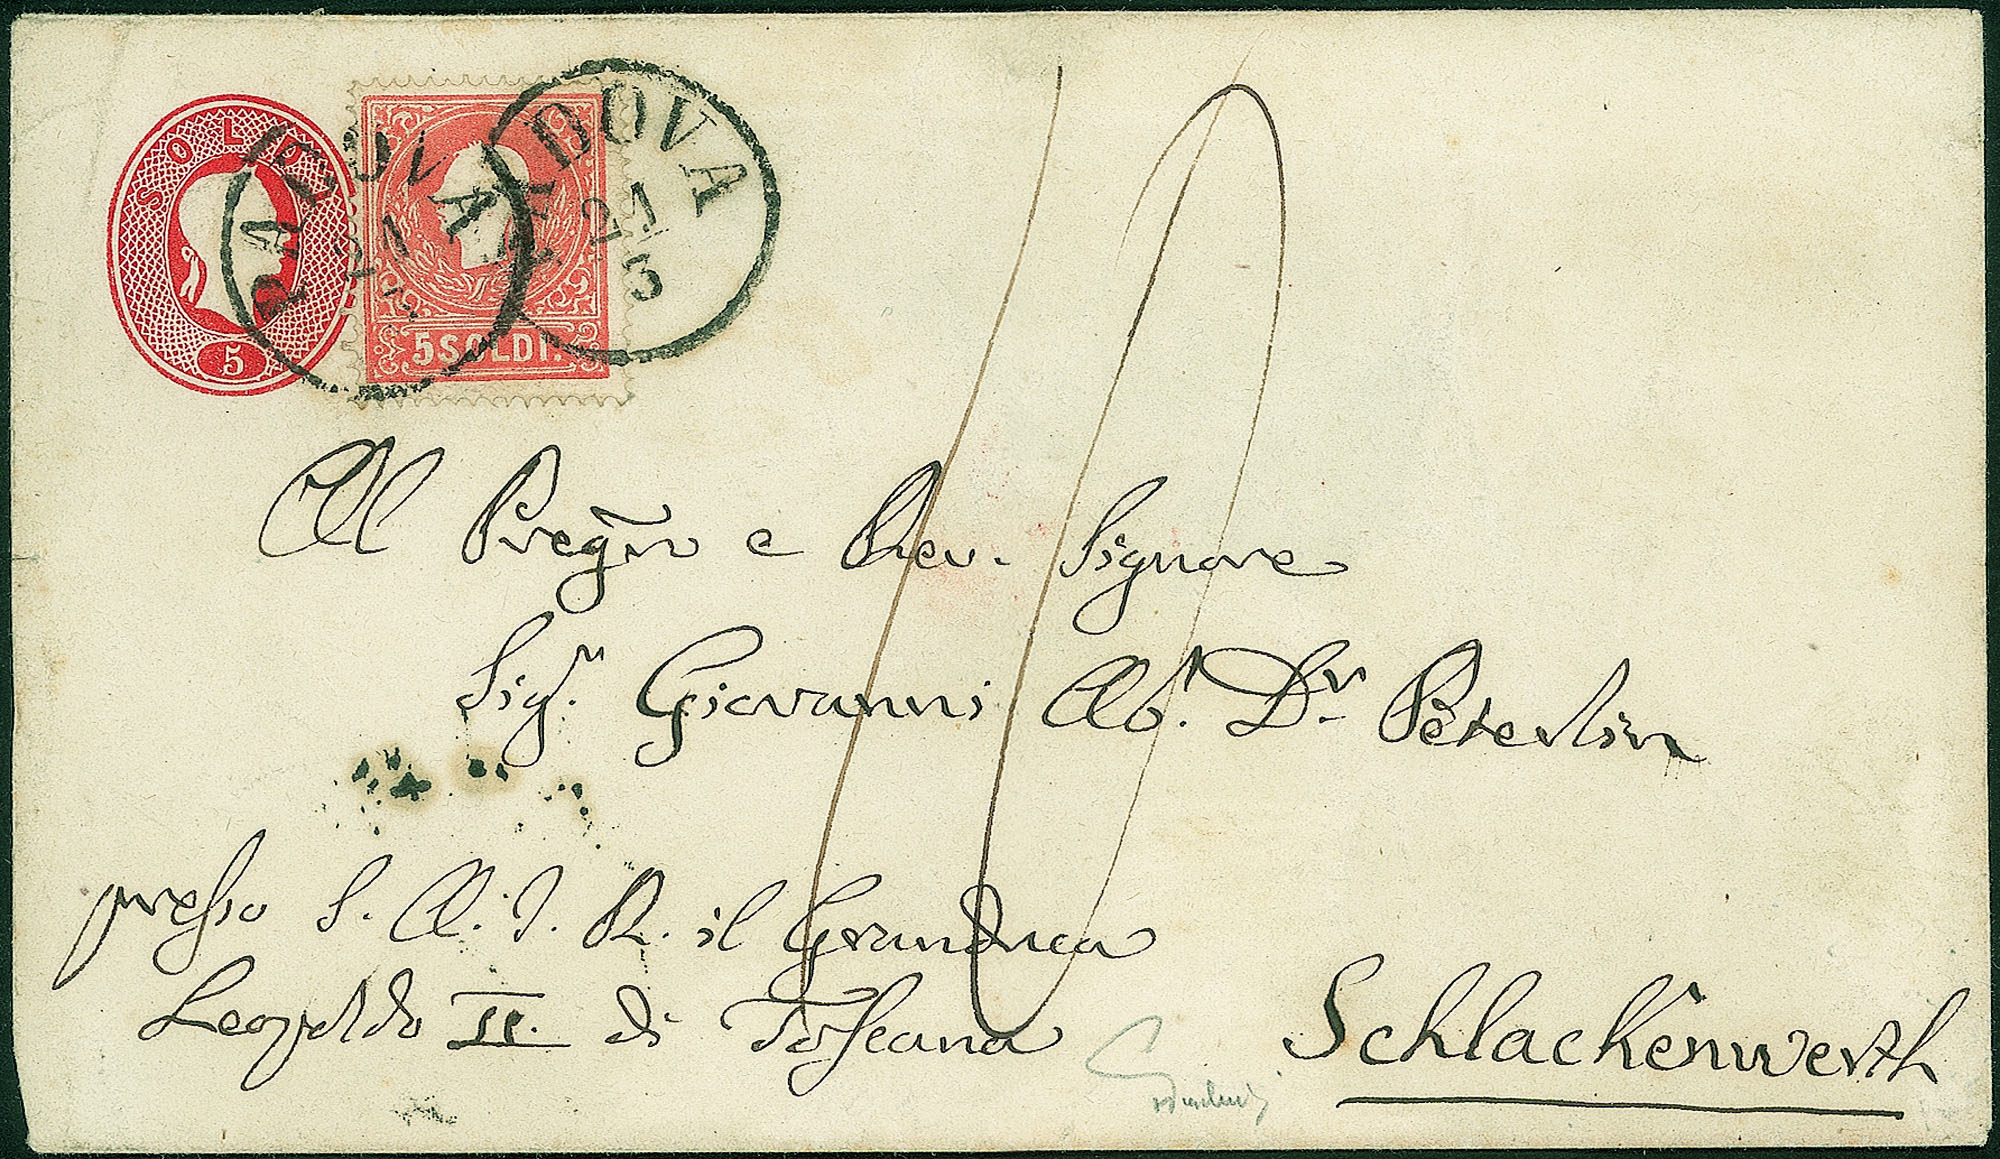 SOLDI
5
PADOVA
21
5 SOLDI.
PADOVA
21
3
10
Al Pregm e Rev. Signore
Sigr. Giovanni Ab. Dr Peterlin
presso S. A. I. R. il Granduca
Leopoldo II. di Toscana
Schlackenwerth